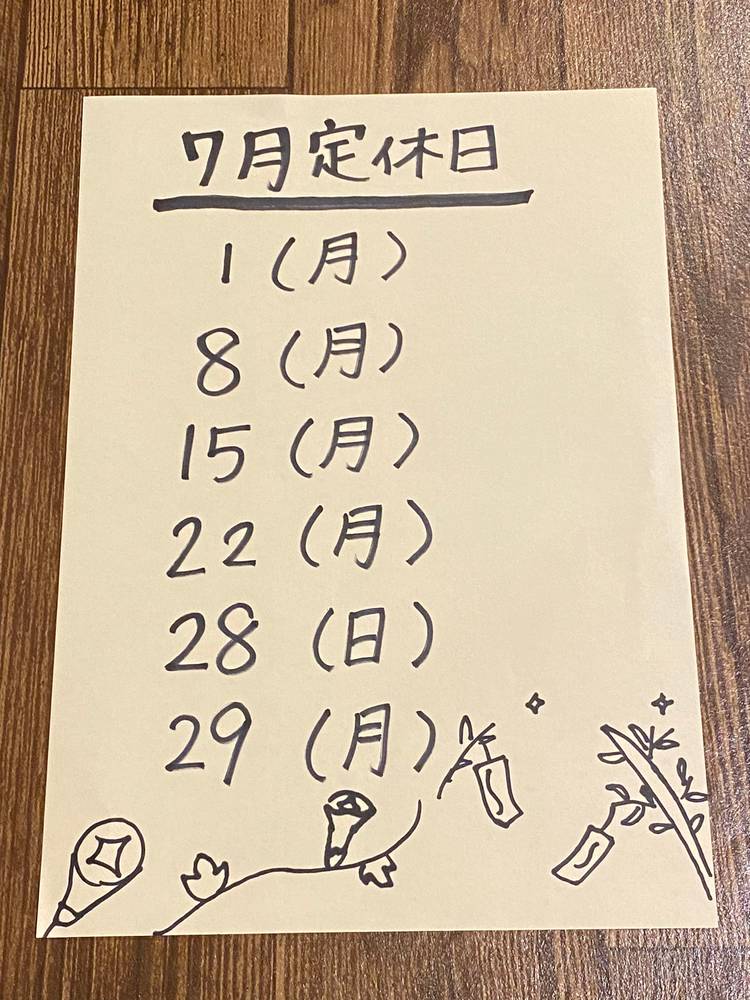 7月定休日
1(月)
8(月)
15(月)
22(月)
28(日)
29(月)